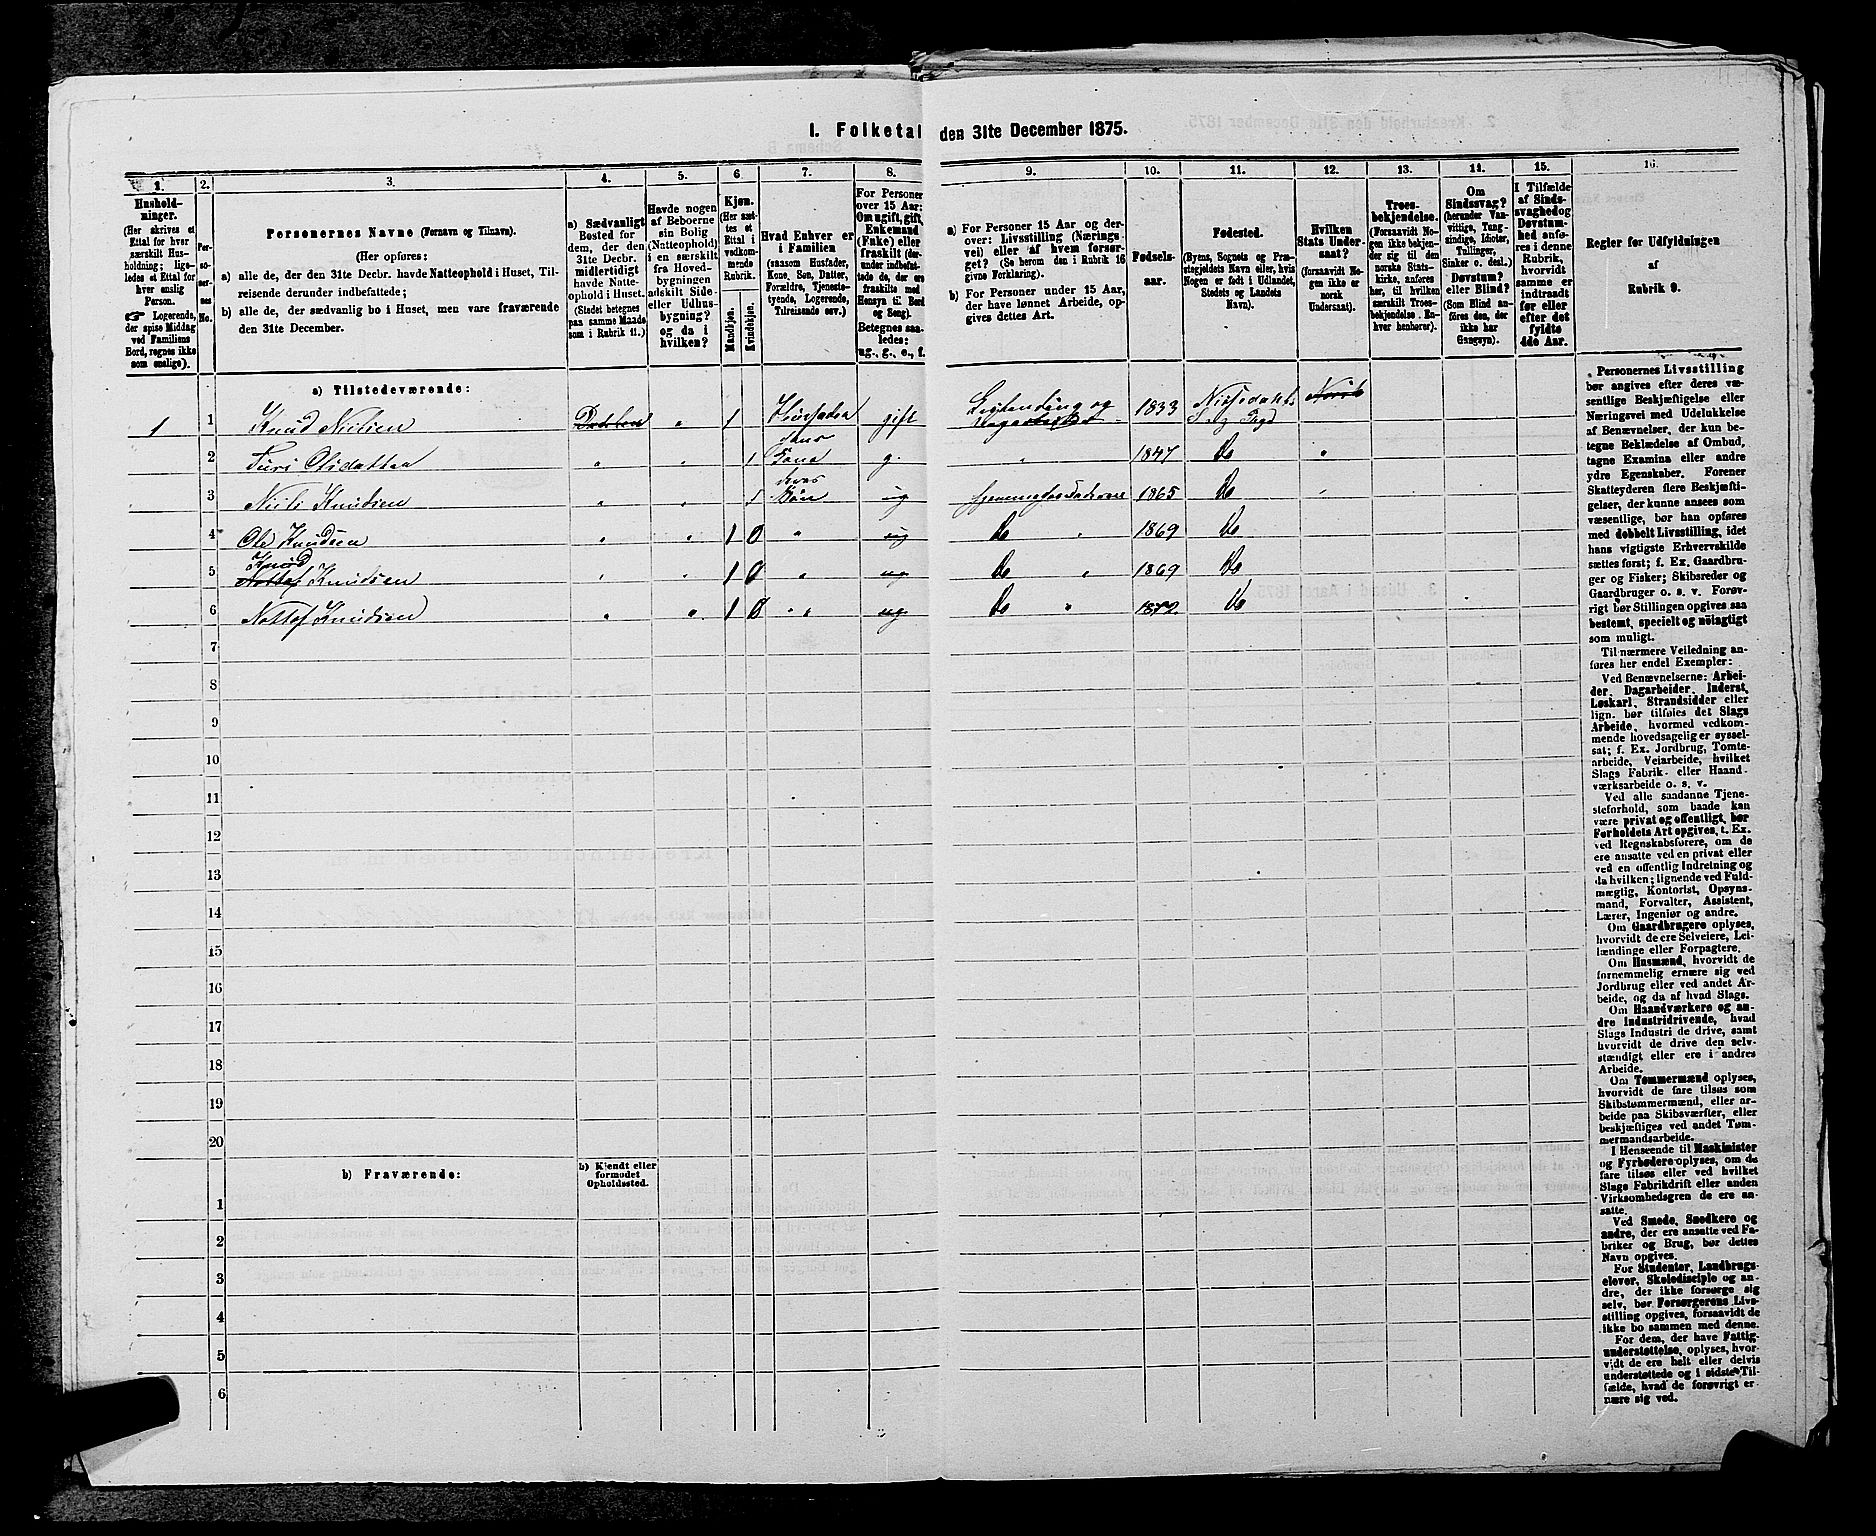 I. Folketal den 31te December 1875.
1.
Hushold-
ninger.
(Her skrives et
Ettal for hver
særskilt Hus-
holdning; lige-
ledes et Ettal for
hver enslig
Person.
☞ Logerende,
der spise Middag
ved Familiens
Bord, regnes ikke
som enslige).
2.
Per-
so-
ner-
nes
No.
3.
Personernes Navne (Fornavn og Tilnavn).
(Her opføres:
a) alle de, der den 31te Decbr. havde Natteophold i Huset, Til-
reisende derunder indbefattede;
b) alle de, der sædvanlig bo i Huset, men vare fraværende
den 31te December.
4.
a) Sædvanligt
Bosted for
dem, der den
31te Decbr.
midlertidigt
havde Natte-
ophold i Huset.
(Stedet betegnes
paa samme Maade
som i Rubrik 11.)
5.
Havde nogen
af Beboerne
sin Bolig
(Natteophold)
i en særskilt
fra Hoved-
bygningen
adskilt Side-
eller Udhus-
bygning?
og da i
hvilken?
6.
Kjøn.
(Her sæt-
tes et
Ettal i
vedkom-
mende
Rubrik.
Mandkjøn.
Kvindekjøn.
7.
Hvad Enhver er
i Familien
(saasom Husfader,
Kone, Søn, Datter,
Forældre, Tjeneste-
tyende, Logerende,
Tilreisende osv.)
8.
For Personer
over 15 Aar:
Om ugift, gift,
Enkemand
(Enke) eller
fraskilt (der-
under indbefat-
tede de, der ere
fraskilte med
Hensyn til Bord
og Seng).
Betegnes saa-
ledes:
ug., g., e., f.
9.
a) For Personer 15 Aar og der-
over: Livsstilling (Nærings-
vei) eller af hvem forsør-
get? (Se herom den i Rubrik 16
givne Forklaring).
b) For Personer under 15 Aar,
der have lønnet Arbeide, op-
gives dettes Art.
10.
Fødsels-
aar.
11.
Fødested.
(Byens, Sognets og Præ-
stegjeldets Navn eller, hvis
Nogen er født i Udlandet,
Stedets og Landets
Navn).
12.
Hvilken
Stats Under-
saat?
(forsaavidt No-
gen ikke er
norsk
Undersaat).
13.
Troes-
bekjendelse.
(Forsaavidt No-
gen ikke bekjen-
der sig til den
norske Stats-
kirke, anføres
her, til hvilken
særskilt Troes-
bekjendelse En-
hver henhører).
14.
Om
Sindssvag?
(herunder Van-
vittige, Tung-
sindige, Idioter,
Tullinger,
Sinker o. desl.)
Døvstum?
eller Blind?
(Som Blind an-
føres den, der
ikke har
Gangsyn).
15.
I Tilfælde
af Sinds-
svaghed og
Døvstum-
hed anfø-
res i denne
Rubrik,
hvorvidt
samme er
indtraadt
før eller
efter det
fyldte
4de Aar.
16.
Regler for Udfyldningen
af
Rubrik 9.
a) Tilstedeværende:
1 1 Knud Nielsen " 1 Huusfader gift Dagarbeider 1833 Norsk
2 Turi Olsdatter " " 1 hans Kone g. " 1847 Do "
3 Nieli Knudsen " " 1 deres Børn ug 1865 Do
4 Ole Knudsen " " 1 0 " ug Do " 1869 Do
5 Knud
Nottof Knudsen " " 1 0 " ug Do " 1869 Do
6 Nottof Knudsen " " 1 0 " " ug Do " 1872 Do
7
8
9
10
11
12
13
14
15
16
17
18
19
20
b) Fraværende:
b) Kjendt eller
formodet
Opholdssted.
1
2
3
4
5
6
Personernes Livsstilling
bør angives efter deres væ-
sentlige Beskjæftigelse eller
Næringsvei med Udelukkelse
af Benævnelser, der kun be-
tegne Beklædelse af Ombud,
tagne Examina eller andre
ydre Egenskaber. Forener
Skatteyderen flere Beskjæfti-
gelser, der kunne ansees som
væsentlige, bør han opføres
med dobbelt Livsstilling, idet
hans vigtigste Erhvervskilde
sættes først; f. Ex. Gaardbru-
ger og Fisker; Skibsreder og
Gaardbruger o. s. v. Forøv-
rigt bør Stillingen opgives saa
bestemt, specielt og nøiagtigt
som muligt.
Til nærmere Veiledning an-
føres her endel Exempler:
Ved Benævnelserne: Arbei-
der, Dagarbeider, Inderst,
Løskarl, Strandsidder eller
lign. bør tilføies det Slags
Arbeide, hvormed vedkom-
mende hovedsagelig er syssel-
sat; f. Ex. Jordbrug, Tomte-
arbeide, Veiarbeide, hvilket
Slags Fabrik- eller Haand-
værksarbeide o. s. v.
Ved alle saadanne Tjene-
steforhold, som baade kan
være privat og offentligt, bør
Forholdets Art opgives, t. Ex.
ved Regnskabsførere, om de
ere ansatte ved en privat eller
ved en offentlig Indretning og
da hvilken; lignende ved Fuld-
mægtig, Kontorist, Opsyns-
mand, Forvalter, Assistent,
Lærer, Ingeniør og andre.
Om Gaardbrugere oplyses,
hvorvidt de ere Selveiere, Lei-
lændinge eller Forpagtere.
Om Husmænd, hvorvidt de
fornemmelig ernære sig ved
Jordbrug eller ved andet Ar-
beide, og da af hvad Slags.
Om Haandværkere og an-
dre Industridrivende, hvad
Slags Industri de drive, samt
hvorvidt de drive den selv-
stændigt eller ere i andres
Arbeide.
Om Tømmermænd oplyses,
hvorvidt de fare tilsøs som
Skibstømmermænd, eller ar-
beide paa Skibsværfter, eller
beskjæftiges ved andet Tøm-
mermandsarbeide.
I Henseende til Maskinister
og Fyrbødere oplyses, om de
fare tilsøs eller ved hvilket
Slags Fabrikdrift eller anden
Virksomhedsgren de ere an-
satte.
Ved Smede, Snedkere og
andre, der ere ansatte ved Fa-
briker og Brug, bør dettes
Navn opgives.
For Studenter, Landbrugs-
elever, Skoledisciple og an-
dre, der ikke forsørge sig
selv, bør Forsørgerens Livs-
stilling opgives, forsaavidt de
ikke bo sammen med denne.
For dem, der have Fattig-
understøttelse, oplyses, hvor-
vidt de ere helt eller delvis
understøttede og i sidste Til-
fælde, hvad de forøvrigt er-
nære sig ved.